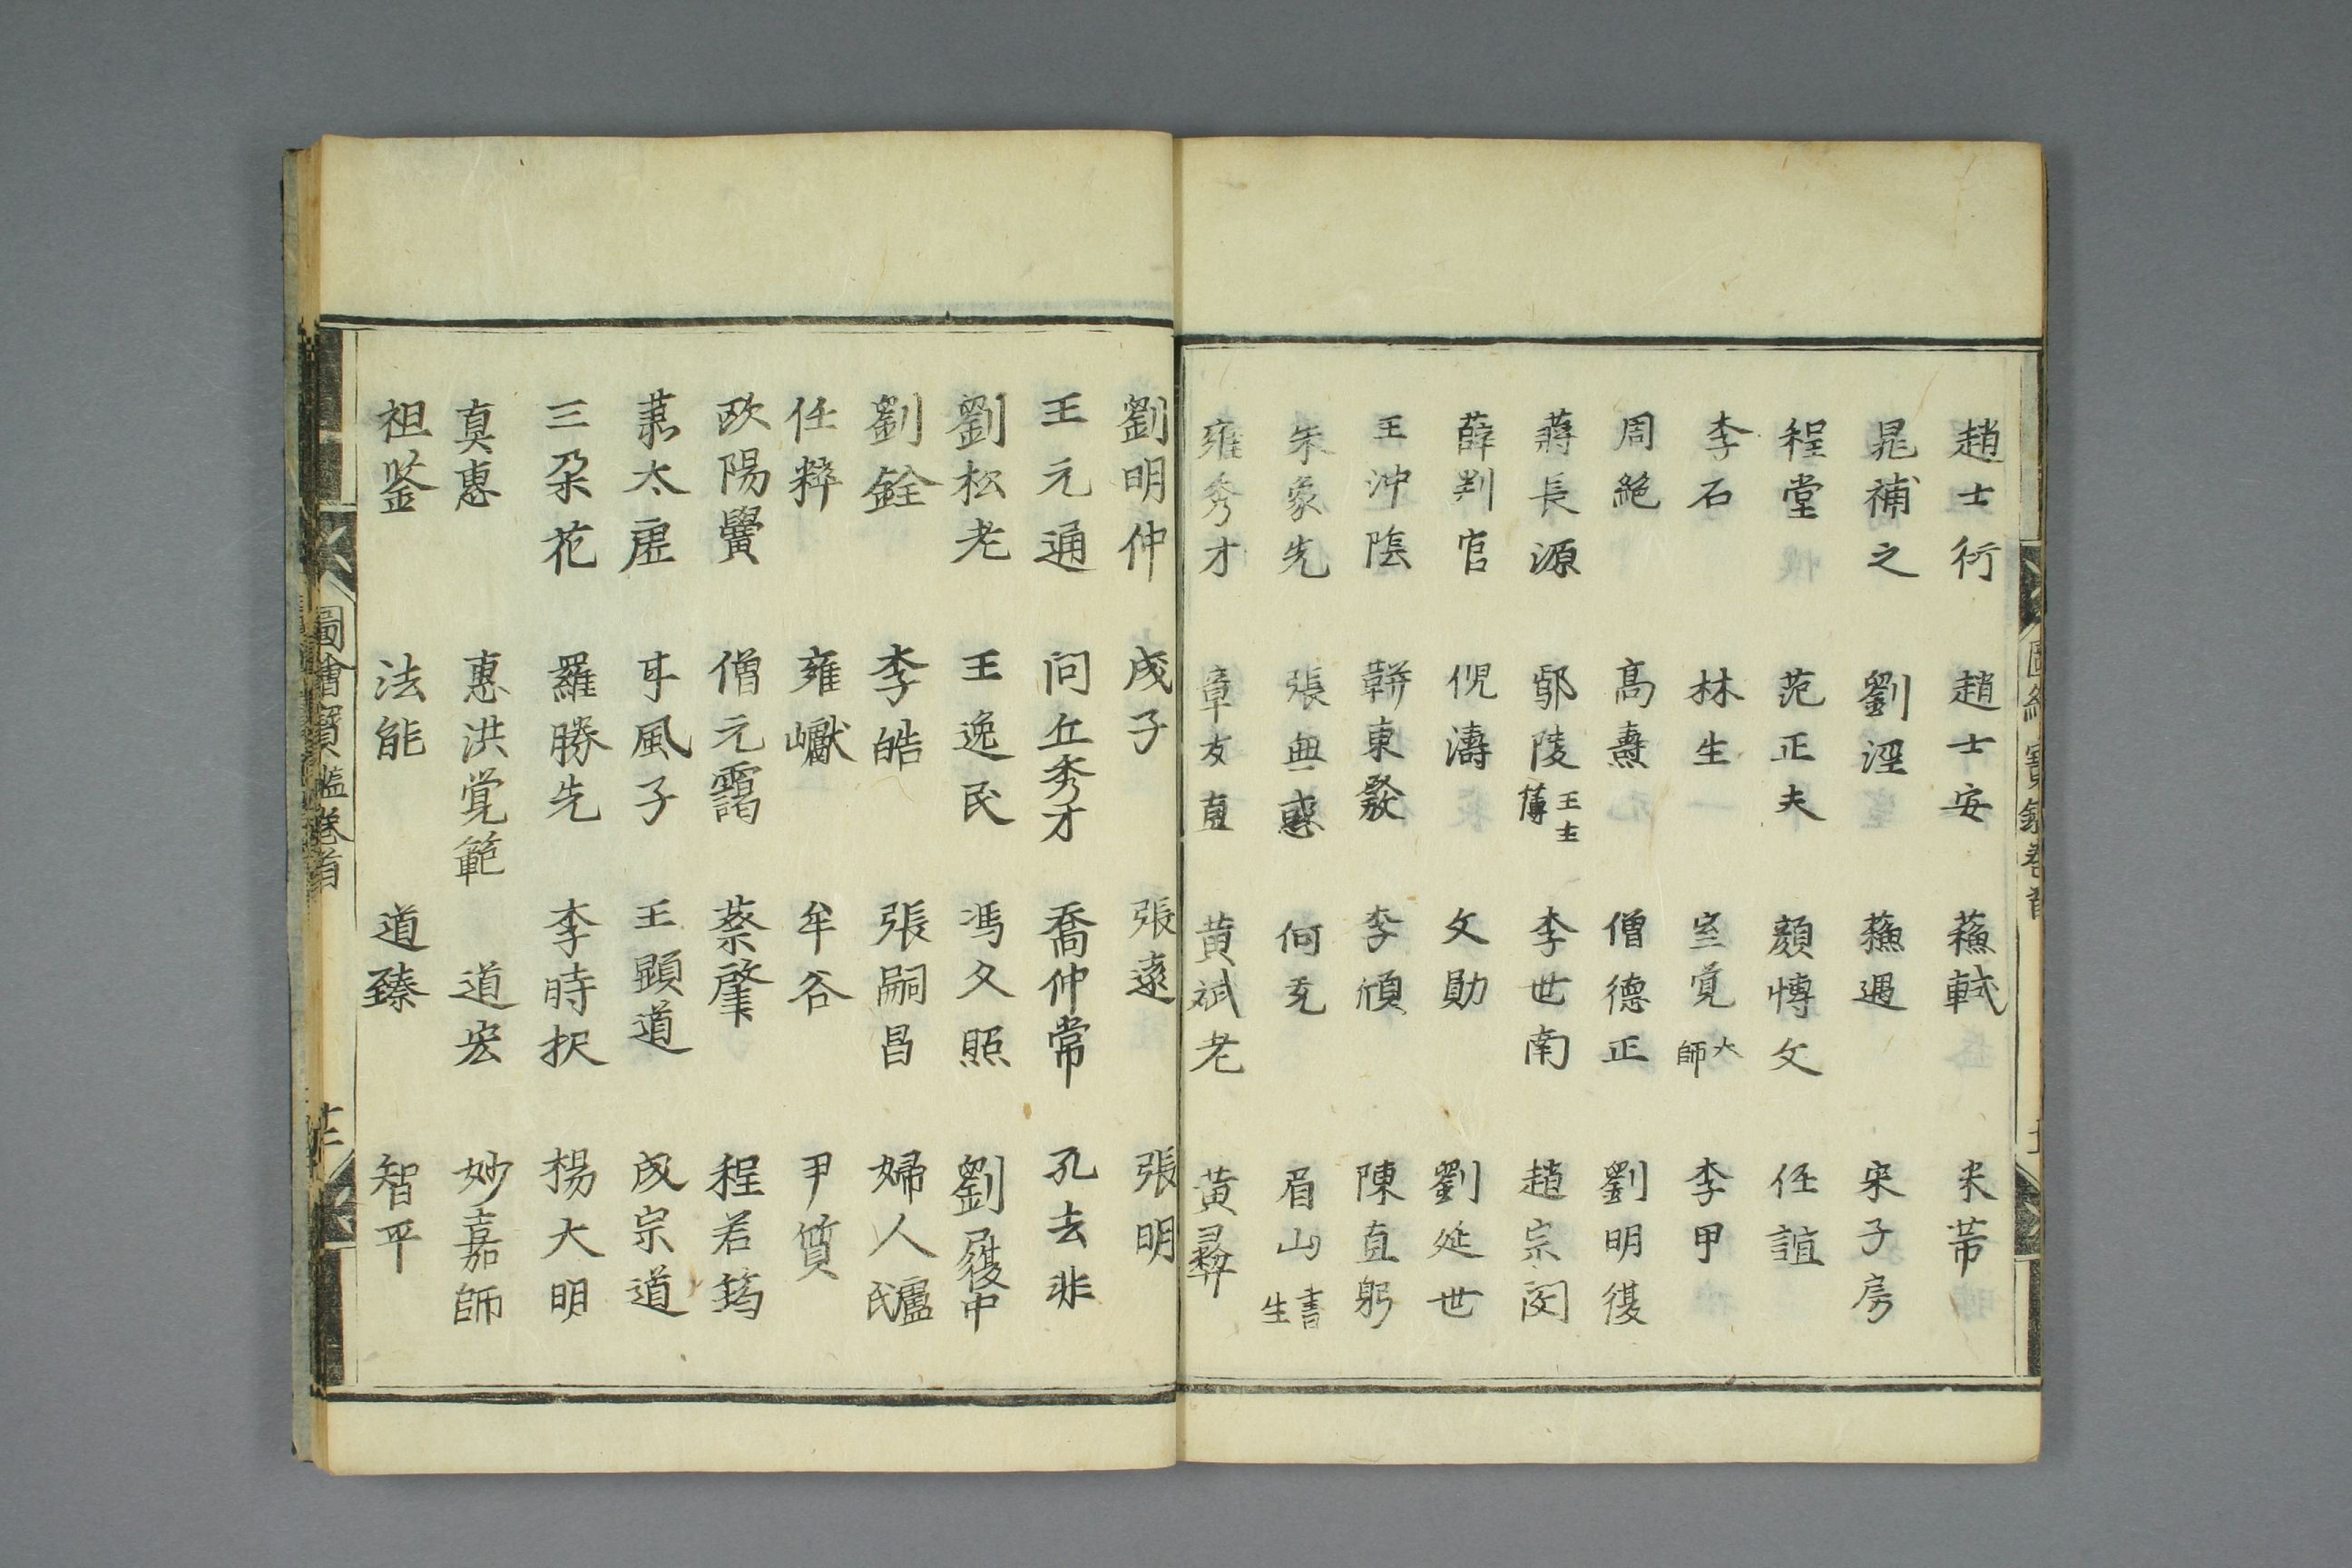 趙士衍 趙士安 蘓軾 米芾
晁補之 劉涇 蘓過 宋子房
程堂 范正夫 顏愽文 任誼
李石 林生 寍覚大師 李甲
周絶 髙燾 僧德正 劉明復
蔣長源 鄢陵王主薄 李世南 趙宗閔
薛判官 倪濤 文勛 劉延世
王沖隂 靳東發 李頎 陳直躬
朱象先 張無惑 何充 眉山書生
雍秀才 章友直 黄斌老 黄彞
劉明仲 成子 張遠 張明
王元通 問丘秀才 喬仲常 孔去非
劉松老 王逸民 馮久照 劉履中
劉銓 李皓 張嗣昌 婦人盧氏
任粹 雍巘 牟谷 尹質
欧陽黌 僧元靄 蔡肇 程若筠
萧太虚 丰風子 王顕道 成宗道
三朶花 羅勝先 李時択 楊大明
真惠 惠洪覚範 道宏 妙嘉師
祖鉴 法能 道臻 智平
圖繪寶鑑卷首